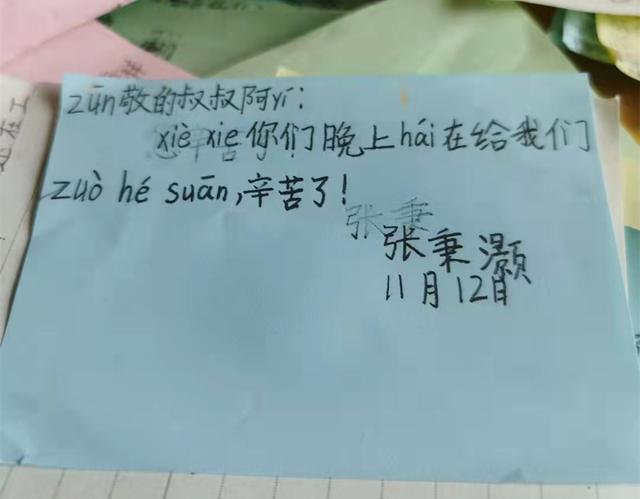 zūn敬的叔叔阿yí:
xiè xie你们晚上hái在给我们
zuò hé suān,辛苦了!
张秉
张秉灏
11月12日